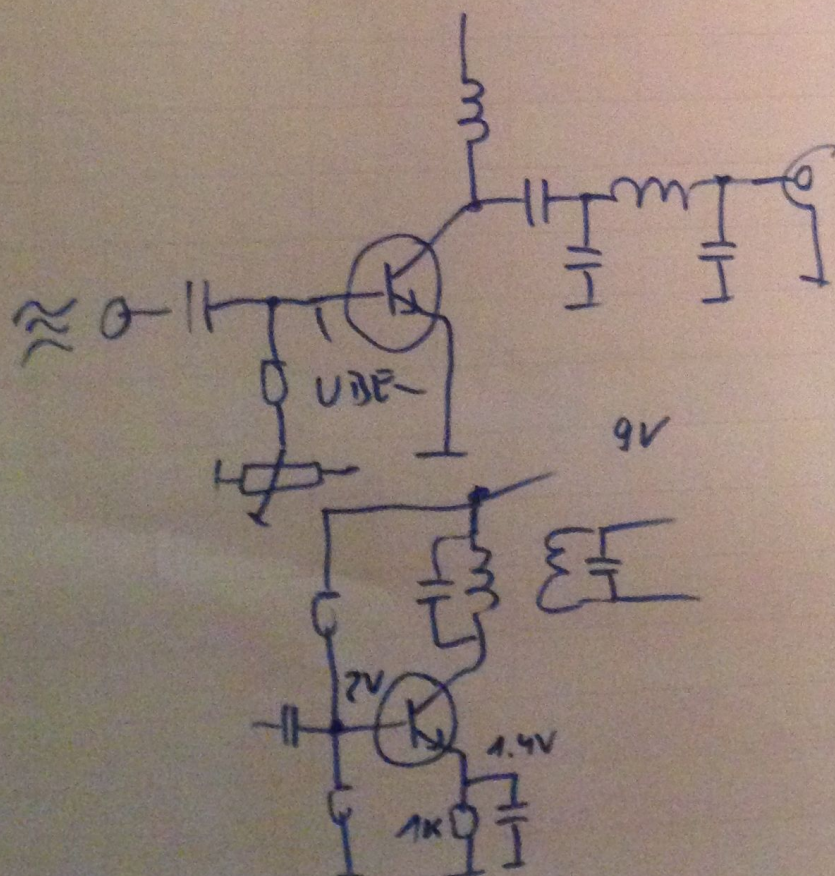 UBE
9V
2V
1.4V
1K